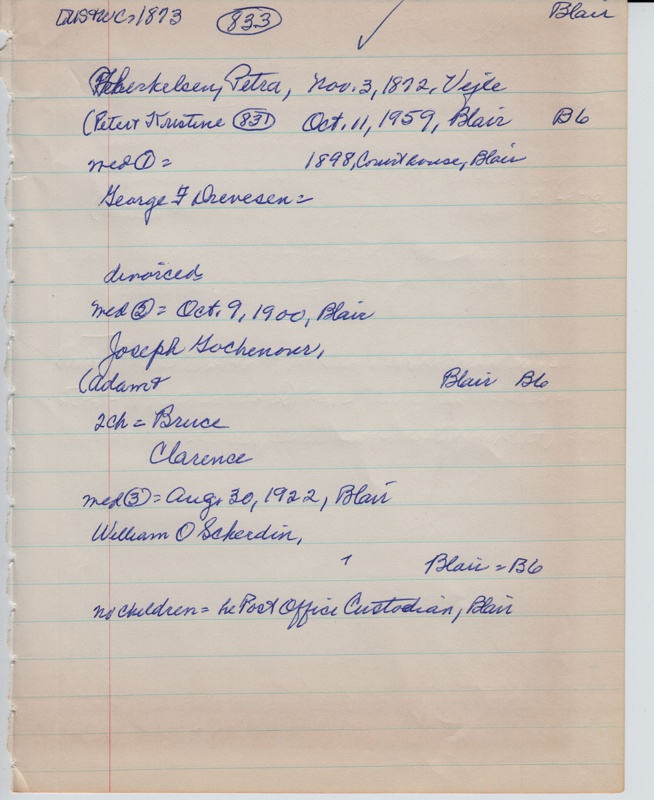 DUS+WC>1873 833 Blair
Therkelsen, Petra, Nov. 3, 1872, Vejle
(Peter+Kristine 831) Oct. 11, 1959, Blair B6
med ① = 1898, Courthouse, Blair
George F Drevesen =
divorced
med ② = Oct. 9, 1900, Blair
Joseph Gochenour,
(Adam+ Blair B6
2ch = Bruce
Clarence
med ③ = Aug. 30, 1922, Blair
William O Scherdin,
Blair = B6
no children = he Post Office Custodian, Blair